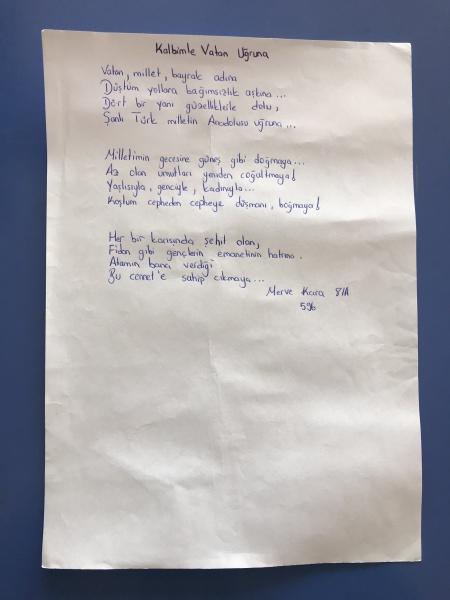 Kalbimle Vatan Uğruna
Vatan, millet, bayrak adına
Düştüm yollara bağımsızlık aşkına...
Dört bir yanı güzelliklerle dolu,
Şanlı Türk milletin Anadolusu uğruna...
Milletimin gecesine güneş gibi doğmaya...
Az olan umutları yeniden çoğaltmaya!
Yaşlısıyla, genciyle, kadınıyla...
Koştum cepheden cepheye düşmanı, boğmaya!
Her bir karısında şehit olan,
Fidan gibi gençlerin emanetinin hatrına.
Atamın bana verdiği
Bu cennet'e sahip çıkmaya...
Merve Kara 8/A
536